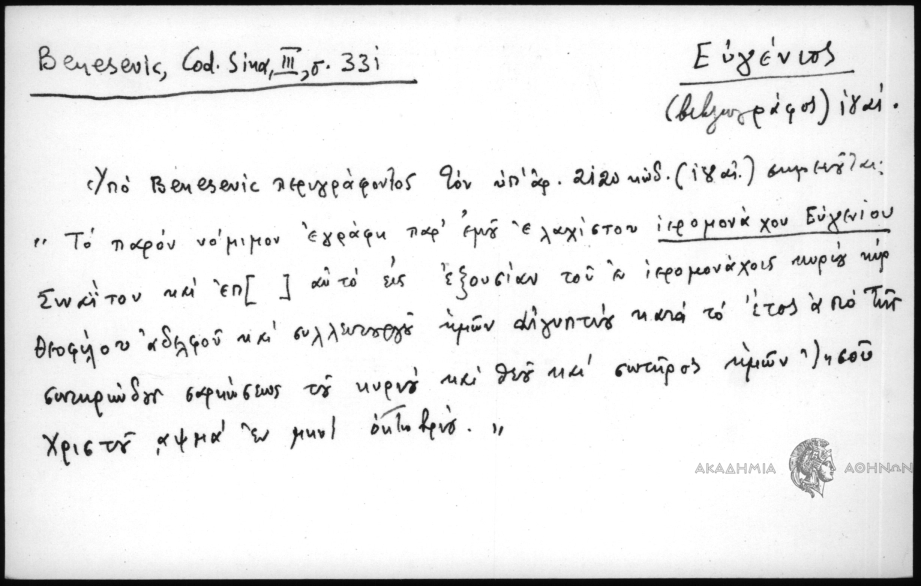 Benesevic, Cod. Sina, III, σ. 331
Εὐγένιος
(βιβλιογράφος) ιηʹ αἰ.
Ὑπό Benesevic περιγράφοντος τόν ὑπ' ἀρ. 2120 κώδ. (ιηʹ αἰ.) σημειοῦται:
„ Τό παρόν νόμιμον ἐγράφη παρ' ἐμοῦ ἐλαχίστου ἱερομονάχου Εὐγενίου
Σιναΐτου καί ἐπ[ ] αὐτό εἰς ἐξουσίαν τοῦ ἐν ἱερομονάχοις κυρίου κύρ
Θεοφίλου ἀδελφοῦ καί συλλειτουργοῦ ἡμῶν Αἰγυπτίου κατά τό ἔτος ἀπό τῆς
σωτηριώδους σαρκώσεως τοῦ κυρίου καί θεοῦ καί σωτῆρος ἡμῶν Ἰησοῦ
Χριστοῦ ͵αψμα' ἐν μηνί ὀκτωβρίου. „
ΑΚΑΔΗΜΙΑ ΑΘΗΝΩΝ